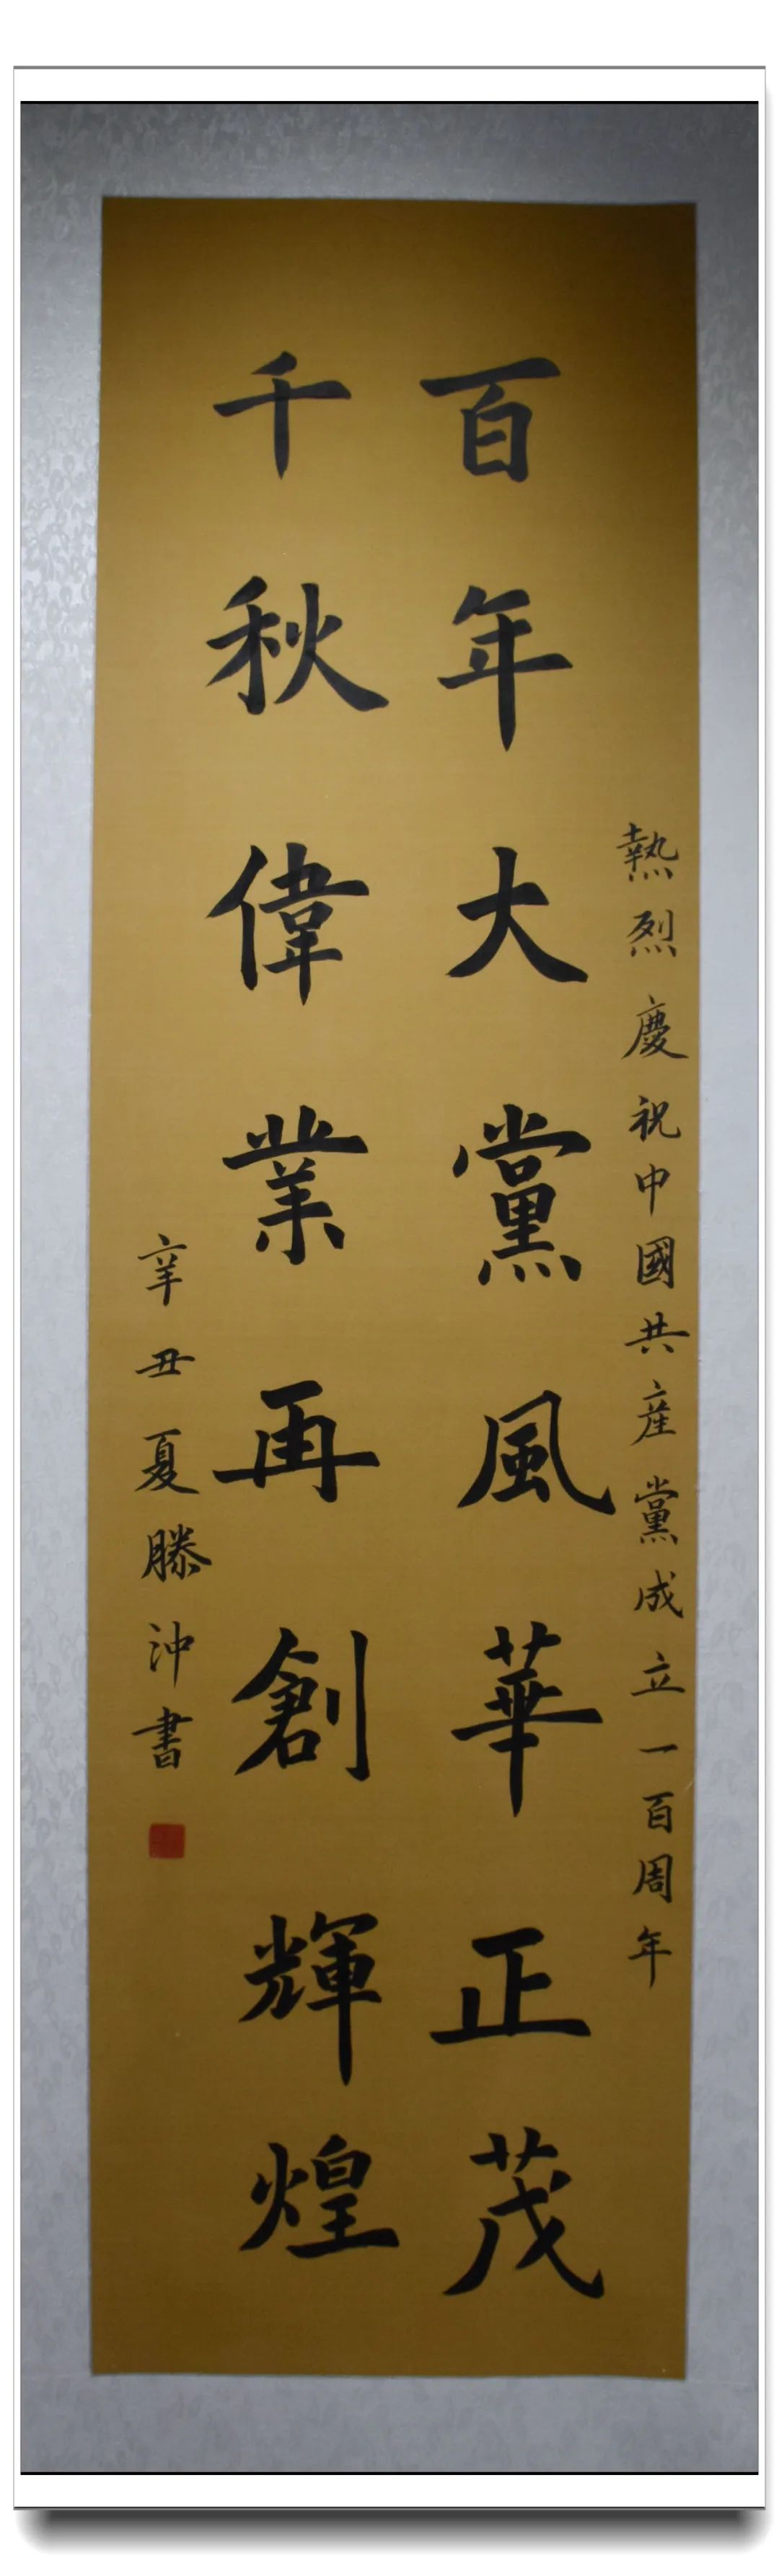 熱烈慶祝中國共産黨成立一百周年
百年大黨風華正茂
千秋偉業再創輝煌
辛丑夏滕沖書